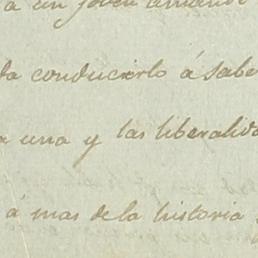 a un joven amando
da conducirlo á sabe
a una y las liberalida
á mas de la historia